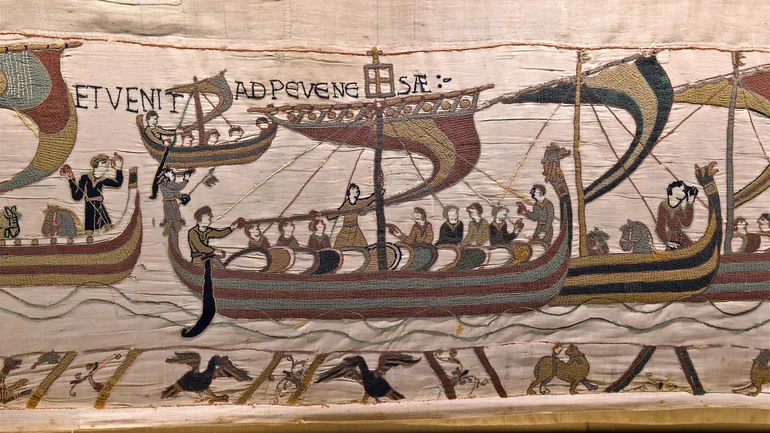 ET VENIT AD PEVENE SÆ :·